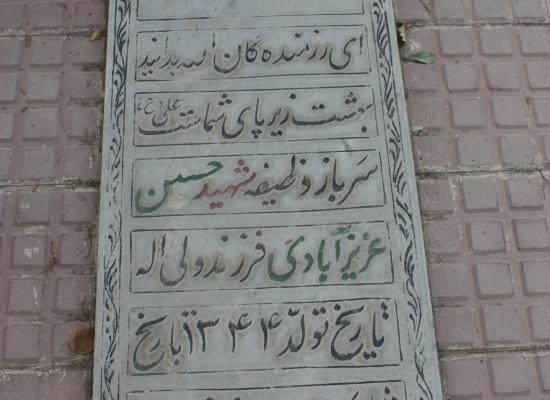 ای رزمنده گان اله بدانید
بهشت زیر پای شماست علی (ع)
سرباز وظیفه شهید حسین
عزیزآبادی فرزند ولی اله
تاریخ تولد ۱۳۴۴ تاریخ